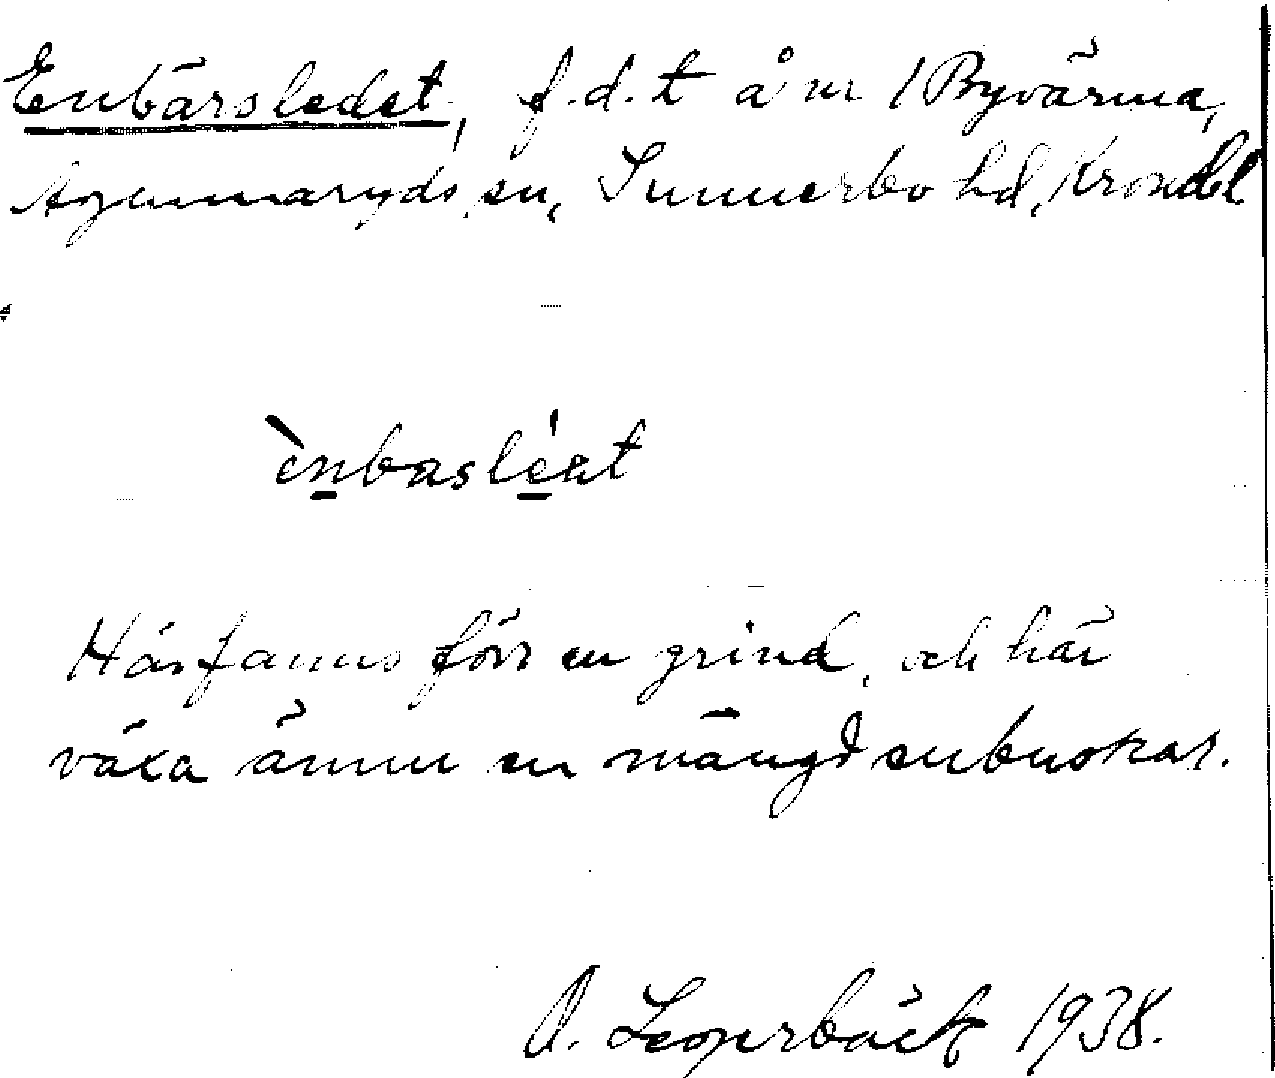 Enbärsledet, f.d.t å nr 1 Byvärma,
Agunnaryds sn, Sunnerbo hd, Kronobl
ènbasléat
Här fanns förr en grind, och här
växa ännu en mängd enbuskar.
1938.